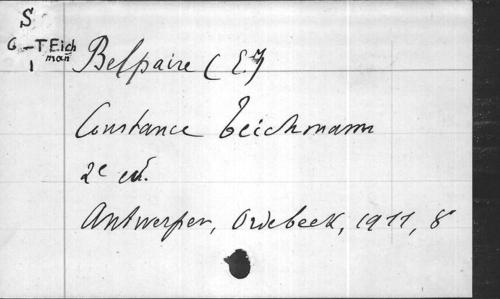 S
G-TEich
man
1
Belpaire (E.)
Constance Teichmann
2e ed.
Antwerpen, Buschmann, 1911, 8°